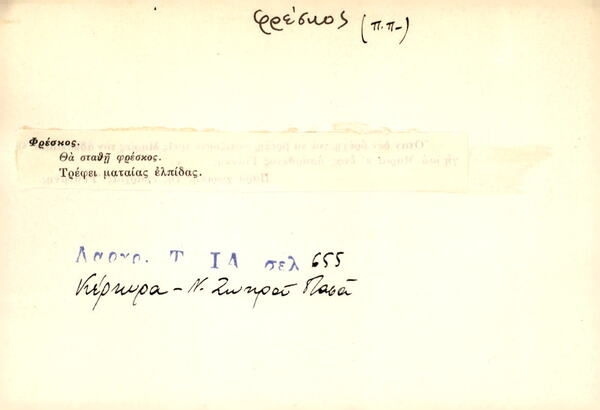 φρέσκος (π.π-)
Φρέσκος.
Θὰ σταθῇ φρέσκος.
Τρέφει ματαίας ἐλπίδας.
Λαογρ. Τ ΙΑ σελ 655
Κέρκυρα - Ν. Σωτηροῦ Πασᾶ